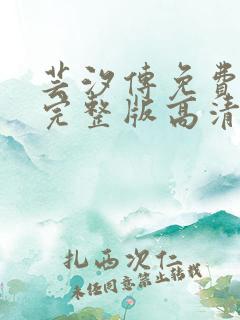 芸汐傳免費
完整版高清
扎西次仁
未经同意禁止转载